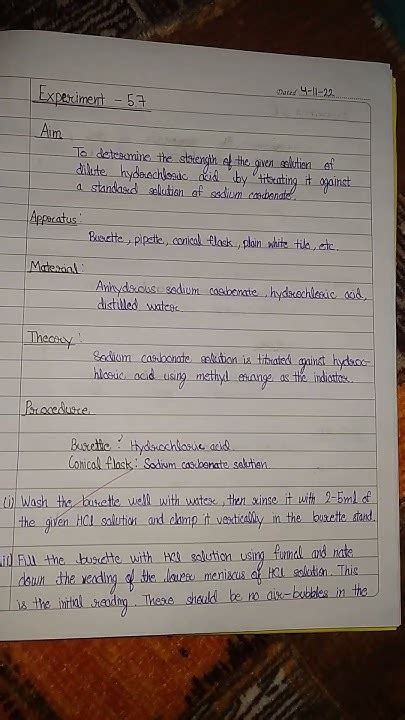 Experiment - 5.7
Dated 4-11-22
Aim
To determine the strength of the given solution of
dilute hydrochloric acid by titrating it against
a standard solution of sodium carbonate.
Apparatus:
Burette, pipette, conical flask, plain white tile, etc.
Material:
Anhydrous sodium carbonate, hydrochloric acid,
distilled water.
Theory:
Sodium carbonate solution is titrated against hydroc-
hloric acid using methyl orange as the indicator.
Procedure
Burette: Hydrochloric acid
Conical flask: Sodium carbonate solution
(i) Wash the burette well with water, then rinse it with 2-5ml of
the given HCl solution and clamp it vertically in the burette stand.
(ii) Fill the burette with HCl solution using funnel and note
down the reading of the lower meniscus of HCl solution. This
is the initial reading. There should be no air-bubbles in the